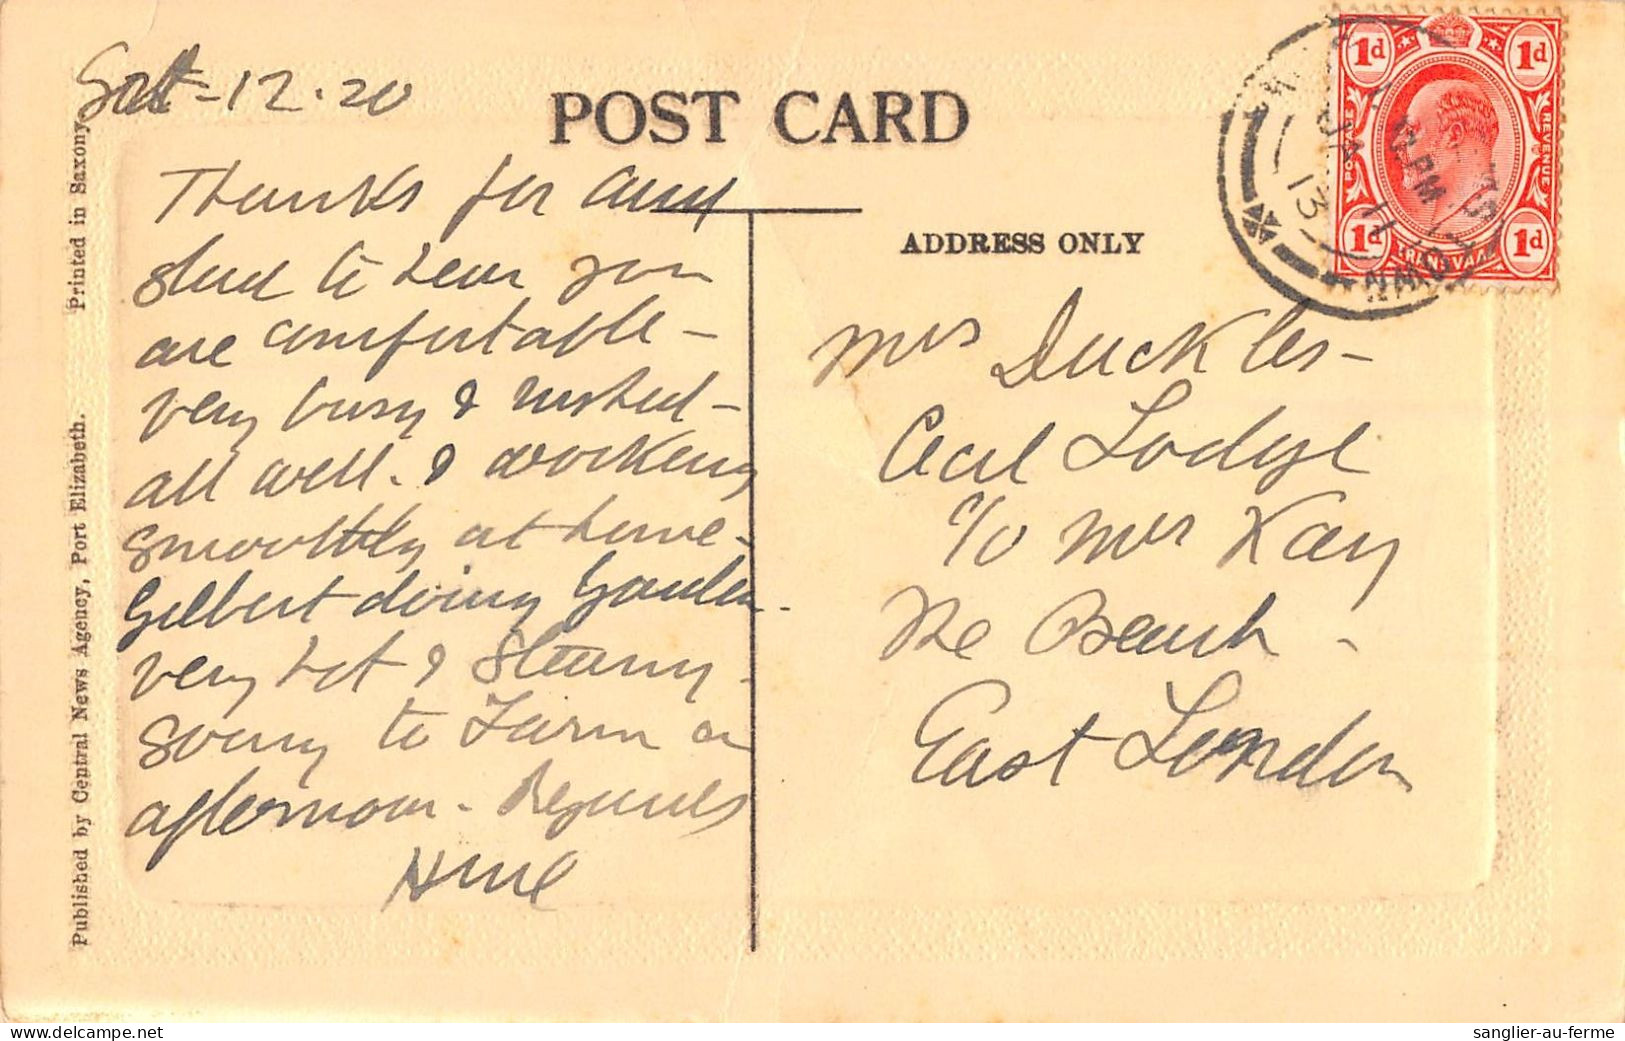 Sat - 12.20
POST CARD
Thanks for
glad to hear you
are comfortable -
very busy & rushed -
all well. & working
smoothly at home -
Gilbert doing Garden -
very hot & Steamy -
going to Farm on
afternoon - Regards
ADDRESS ONLY
Mrs Duckles -
Cecil Lodge
c/o Mrs Kay
The Beach -
East London
Published by Central News Agency, Port Elizabeth.
Printed in Saxony
1d 1d
POSTAGE REVENUE
1d 1d
TRANSVAAL
JA 11
13
PM
delcampe.net
sanglier-au-ferme